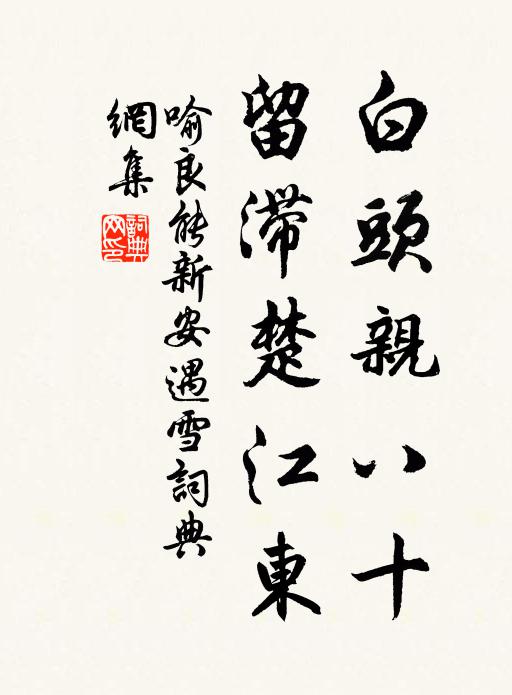 白頭親八十
留滯楚江東
喻良能新安遇雪詞典
網集
詞典
網印